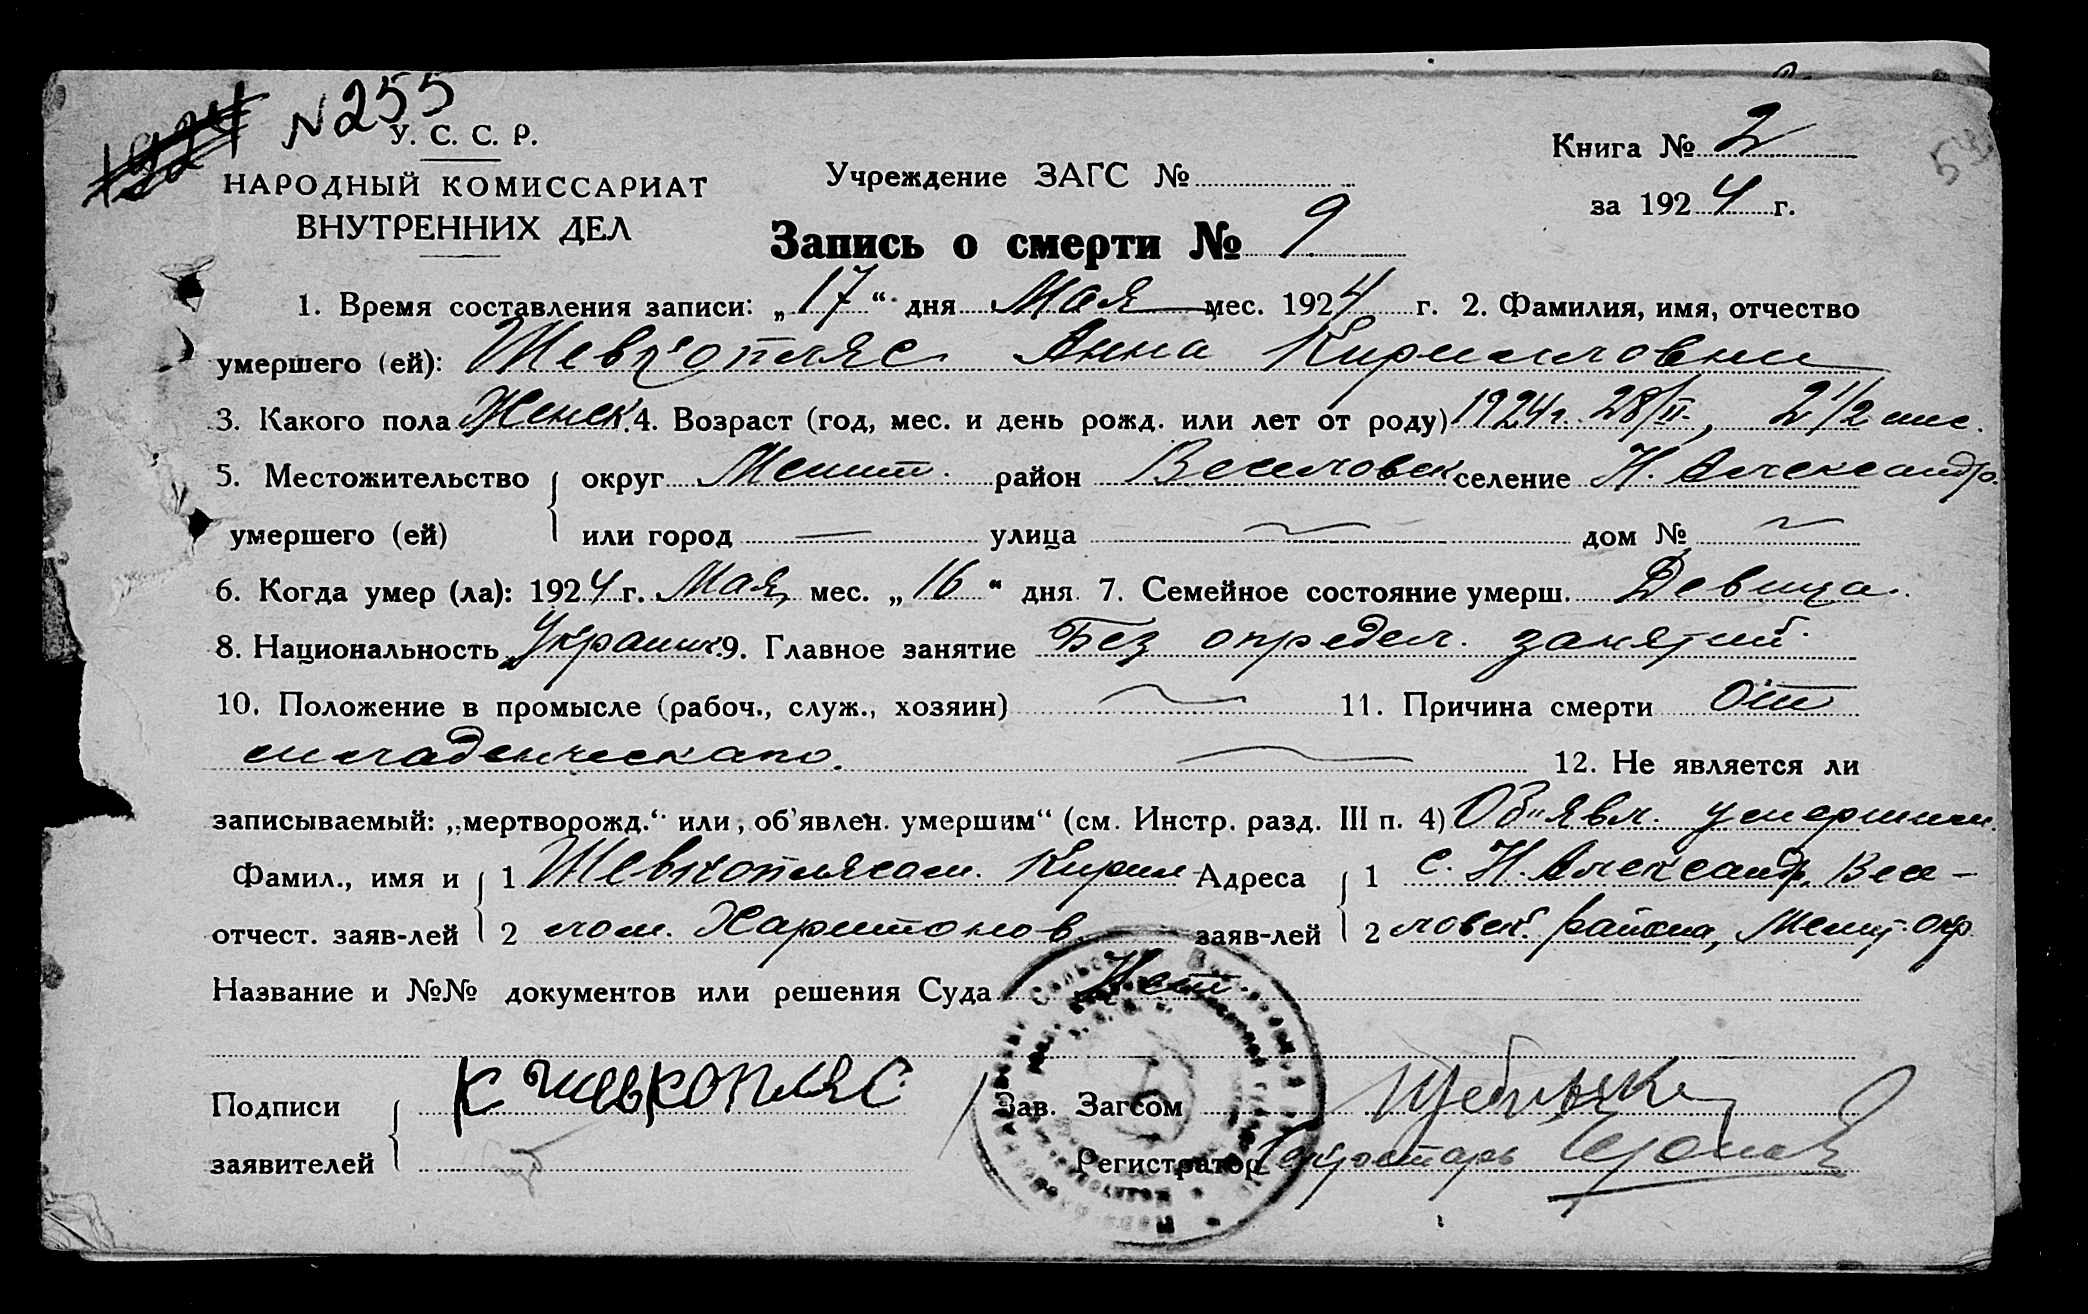 1924 N 255
У. С. С. Р.
НАРОДНЫЙ КОМИССАРИАТ
ВНУТРЕННИХ ДЕЛ
Учреждение ЗАГС №
Книга № 2
за 1924 г.
54
Запись о смерти № 9
1. Время составления записи: „17“ дня Мая мес. 1924 г. 2. Фамилия, имя, отчество
умершего (ей): Шевкопляс Анна Кирилловны
3. Какого пола Женск. 4. Возраст (год, мес. и день рожд. или лет от роду) 1924 г. 28/II, 2 1/2 мес.
5. Местожительство округ Мелит. район Веселовск. селение Н. Александр.
умершего (ей) или город — улица ~ дом № ~
6. Когда умер (ла): 1924 г. Мая мес. „16“ дня 7. Семейное состояние умерш. Девица.
8. Национальность Украинк. 9. Главное занятие Без определ. занятий
10. Положение в промысле (рабоч., служ., хозяин) ~ 11. Причина смерти От
младенческаго. ~ 12. Не является ли
записываемый: „мертворожд.“ или „об'явлен. умершим“ (см. Инстр. разд. III п. 4) Об"явл. умершим.
Фамил., имя и 1 Шевкоплясом. Кирил- Адреса 1 с. Н. Александр, Весе-
отчест. заяв-лей 2 лом. Харитонов. заяв-лей 2 ловск. района, Мелит. окр
Название и №№ документов или решения Суда Нет
Подписи К Шевкопляс Зав. Загсом
заявителей Регистратор Секретарь